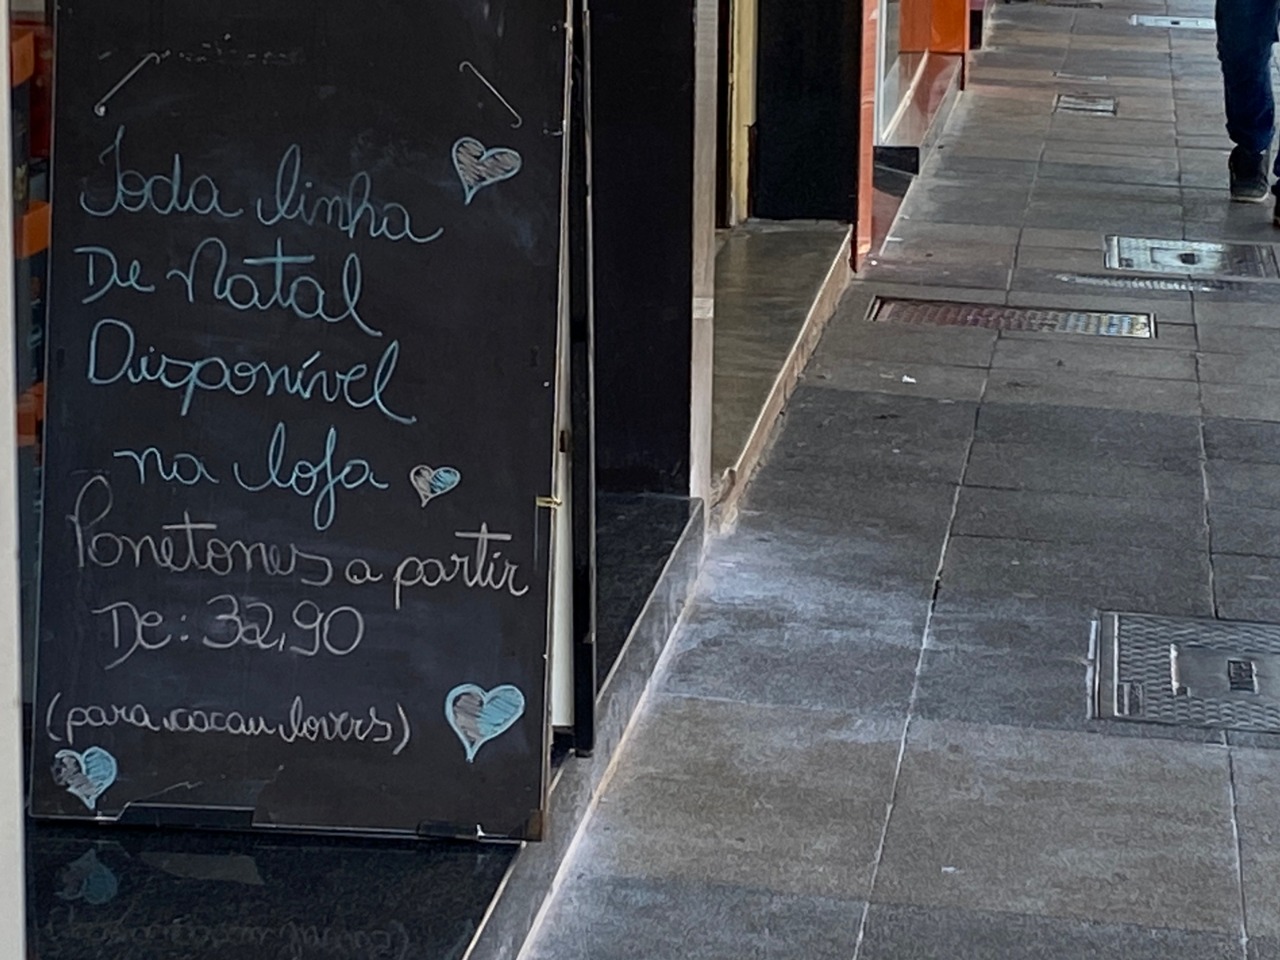 Toda linha
De Natal
Disponível
na loja
Panetones a partir
De: 32,90
(para cacau lovers)